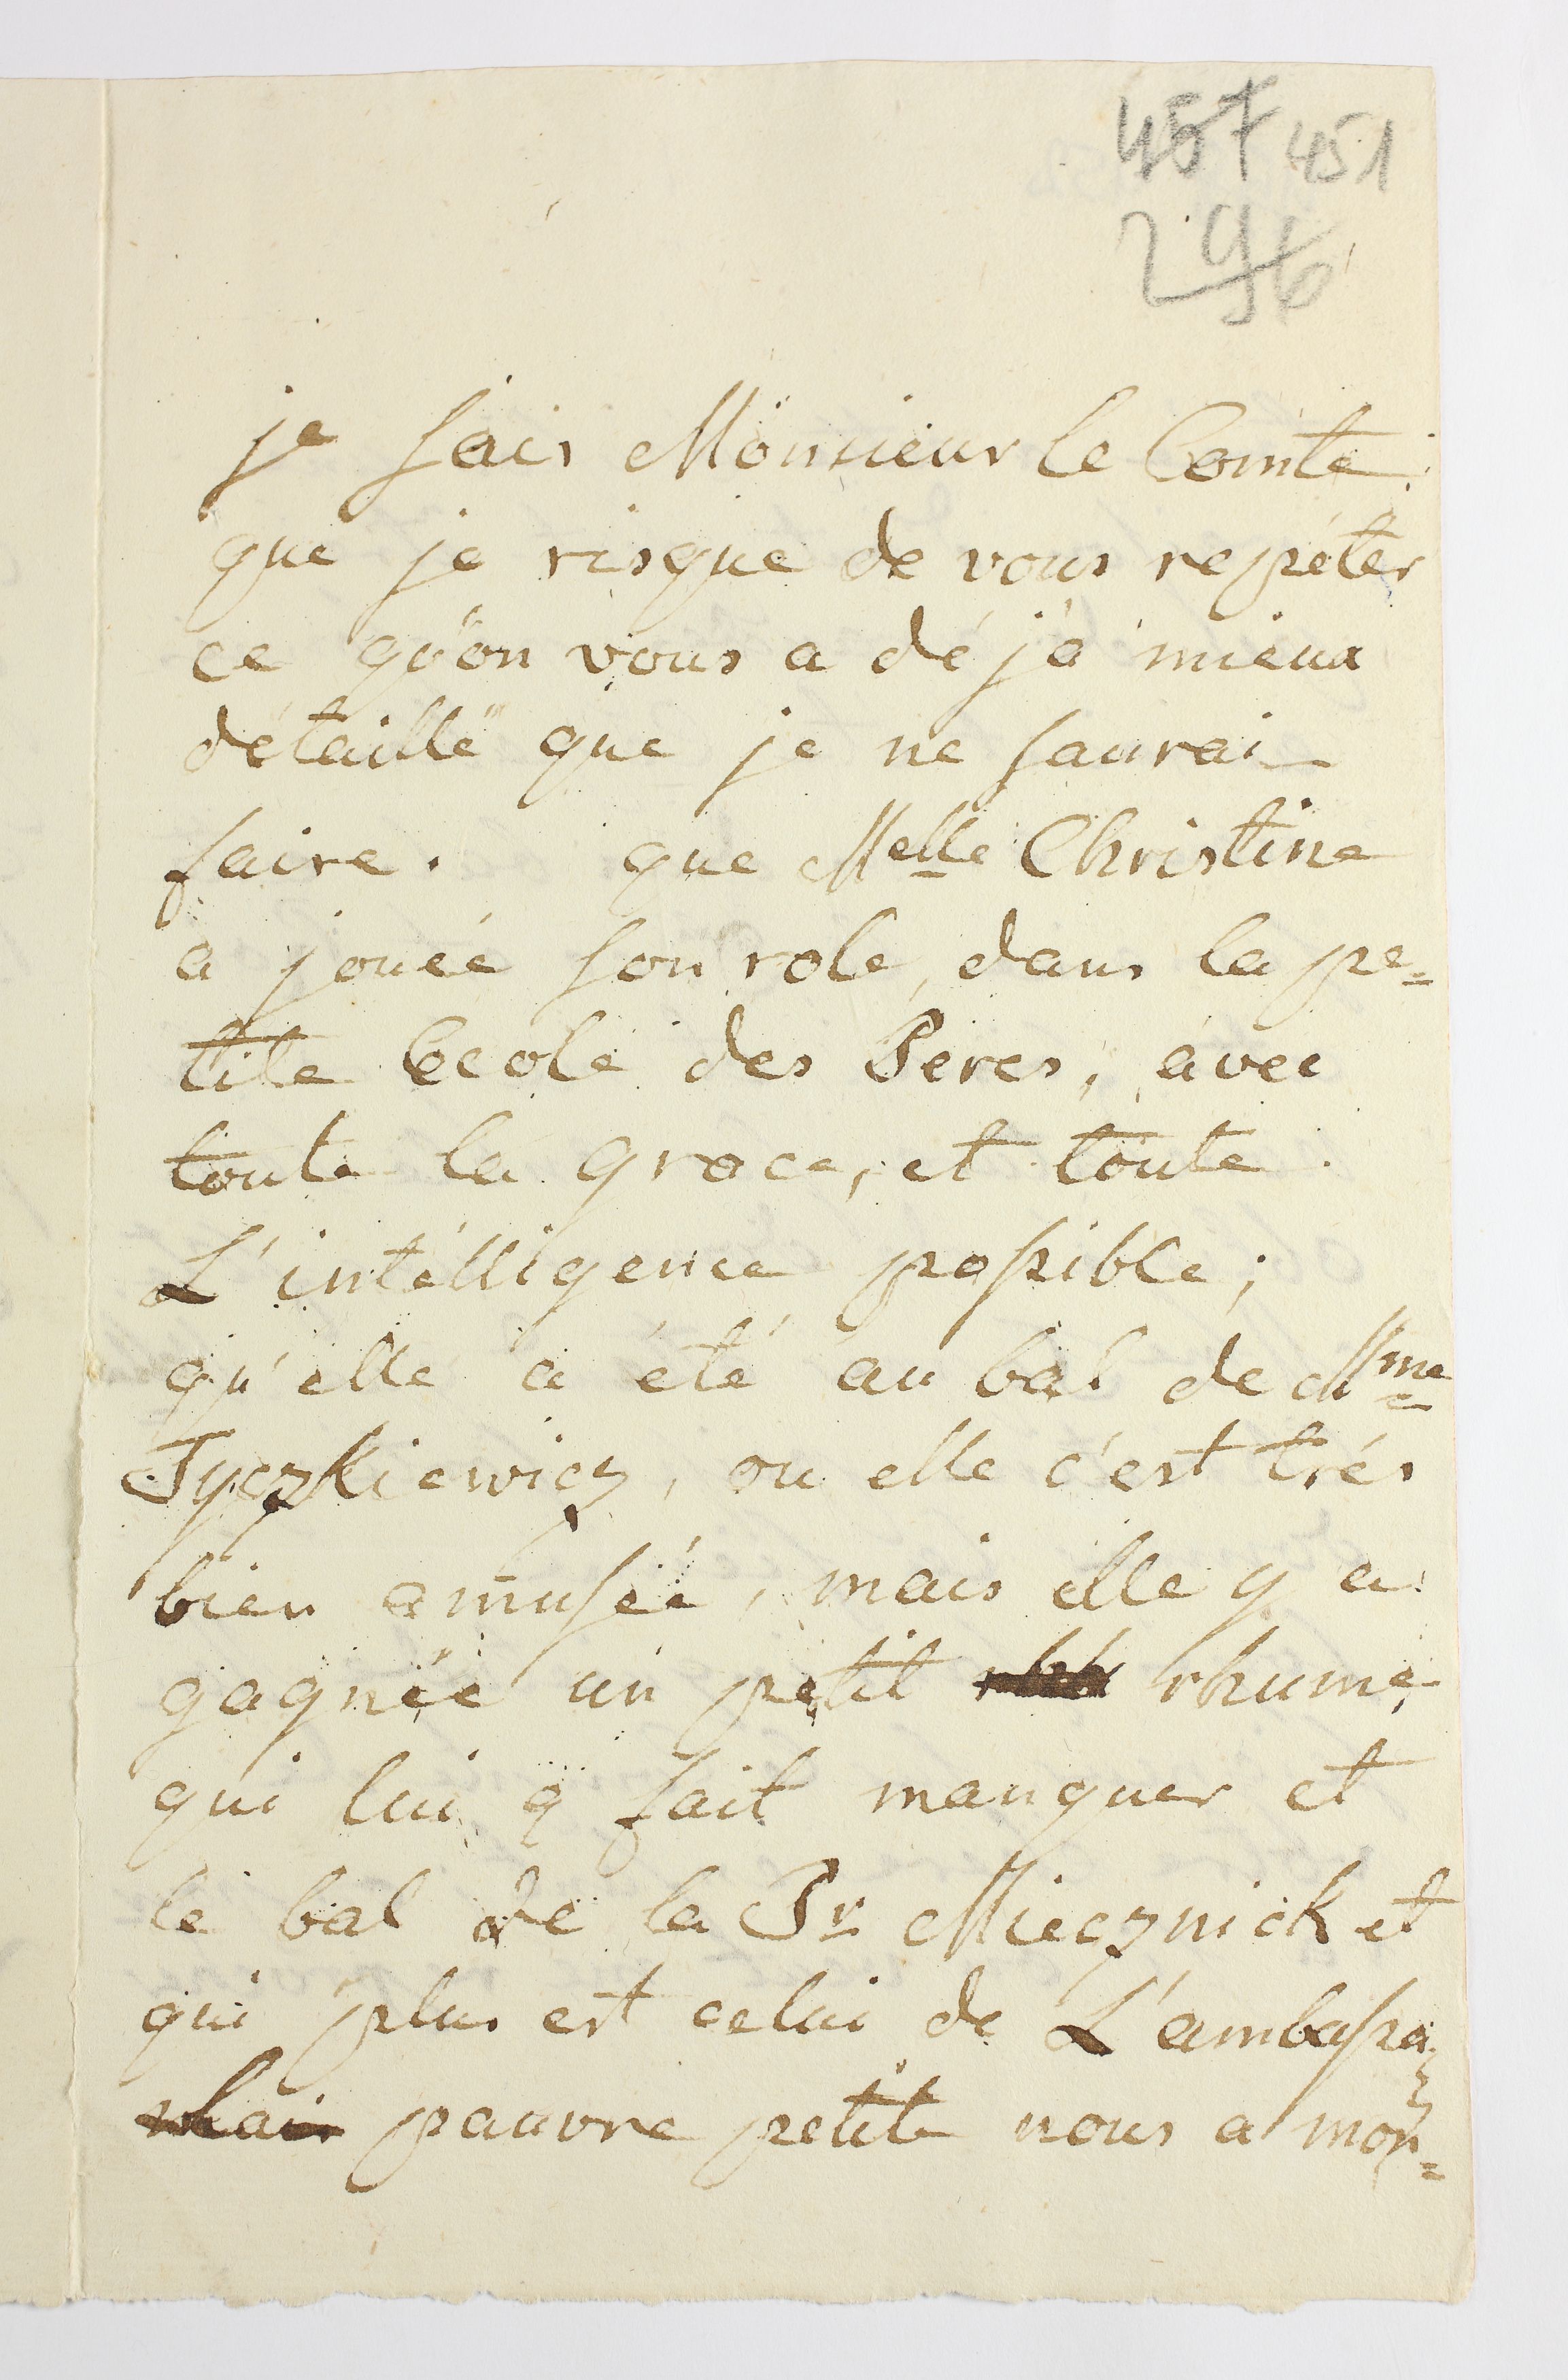 457 451
296
je sais Monsieur le Comte
que je risque de vous repéter
ce qu'on vous a déjà mieux
détaillé que je ne saurai
faire. que Melle Christine
a jouée son role, dans la pe=
tite Ecole des Peres, avec
toute la grace, et toute
L'intélligence possible;
qu'elle a été au bal de Mme
Tyczkiewicz, ou elle c'est trés
bien amusée, mais elle y a
gagnée un petit rhume
qui lui a fait manquer et
le bal de la Pr Miecznick et
qui plus est celui de L'ambassa=
pauvre petite nous a mon=